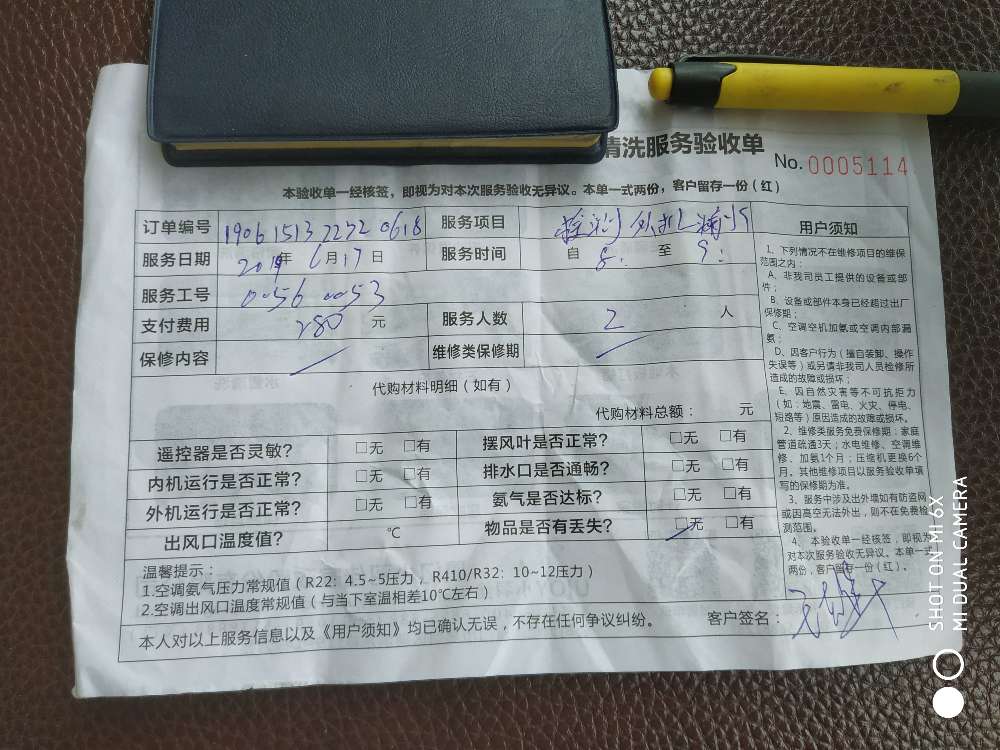 清洗服务验收单
No. 0005114
本验收单一经核签，即视为对本次服务验收无异议。本单一式两份，客户留存一份（红）
订单编号 190615132232 0618 服务项目
服务日期 2019年6月17日 服务时间 自 8: 至 9:
服务工号 0056 0053
支付费用 280 元 服务人数 2 人
保修内容 维修类保修期
代购材料明细（如有）
代购材料总额： 元
遥控器是否灵敏？ □无 □有 摆风叶是否正常？ □无 □有
内机运行是否正常？ □无 □有 排水口是否通畅？ □无 □有
外机运行是否正常？ □无 □有 氨气是否达标？ □无 □有
出风口温度值？ ℃ 物品是否有丢失？ □无 □有
温馨提示：
1.空调氨气压力常规值（R22：4.5~5压力，R410/R32：10~12压力）
2.空调出风口温度常规值（与当下室温相差10℃左右）
本人对以上服务信息以及《用户须知》均已确认无误，不存在任何争议纠纷。 客户签名：
用户须知
1、下列情况不在维修项目的维保
范围之内：
A、非我司员工提供的设备或部
件；
B、设备或部件本身已经超过出厂
保修期；
C、空调空机加氨或空调内部漏
氨；
D、因客户行为（擅自装卸、操作
失误等）或另请非我司人员检修所
造成的故障或损坏；
E、因自然灾害等不可抗拒力
（如：地震、雷电、火灾、停电、
短路等）原因造成的故障或损坏。
2、维修类服务免费保修期：家庭
管道疏通3天；水电维修、空调维
修、加氨1个月；压缩机更换6个
月。其他维修项目以服务验收单填
写的保修期为准。
3、服务中涉及出外墙如有防盗网
或因高空无法外出，则不在免费检
测范围。
4、本验收单一经核签，即视为
对本次服务验收无异议。本单一式
两份，客户留存一份（红）。
SHOT ON MI 6X
MI DUAL CAMERA